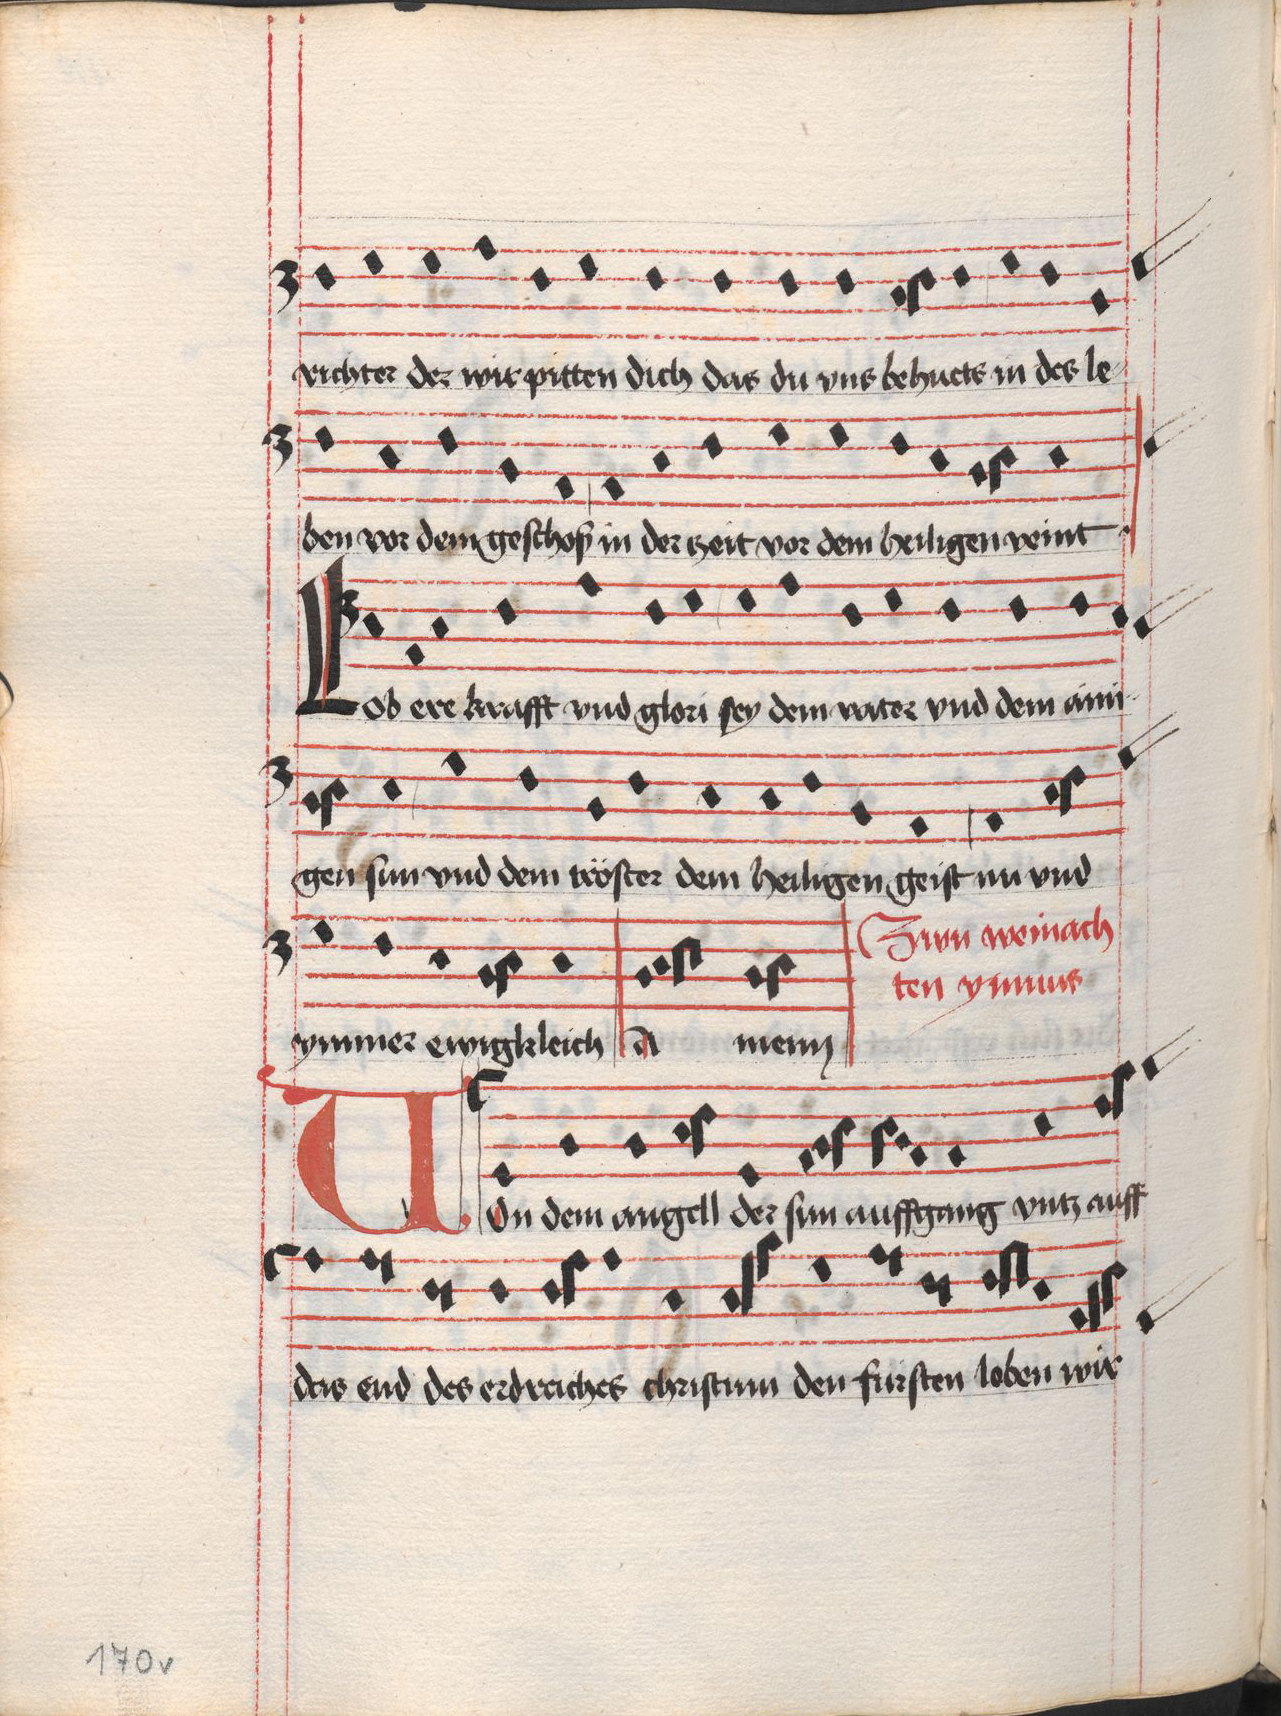 richter der wir pitten dich das du vns behuets in des le-
ben vor dem geschoß in der zeit vor dem heiligen veint
Lob ere krafft vnd glori sey dem vater vnd dem aini-
gen sun vnd dem tröster dem heiligen geist nu vnd
ymmer ewigkleich A menn
Zwn weinach
ten ymnus
Von dem angell der sun auffgang vntz auff
das end des erdreiches christum den fürsten loben wir
170v